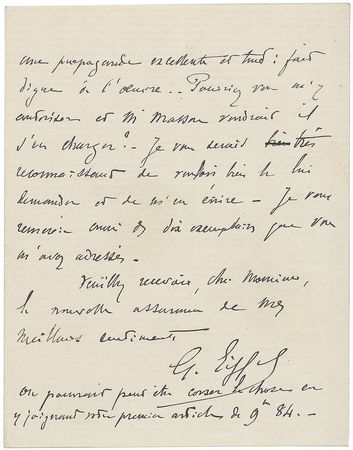 une propagande excellente et tout à fait
digne de l'œuvre.. Pourriez vous m'y
autoriser et Mr Masson voudrait il
s'en charger? - Je vous serais bien très
reconnaissant de vouloir bien le lui
demander et de m'en écrire - Je vous
remercie aussi des dix exemplaires que vous
m'avez adressés -
Veuillez recevoir, cher Monsieur,
la nouvelle assurance de mes
meilleurs sentiments
G. Eiffel
On pourrait peut être corser la chose en
y joignant votre premier article de 9bre 84. -